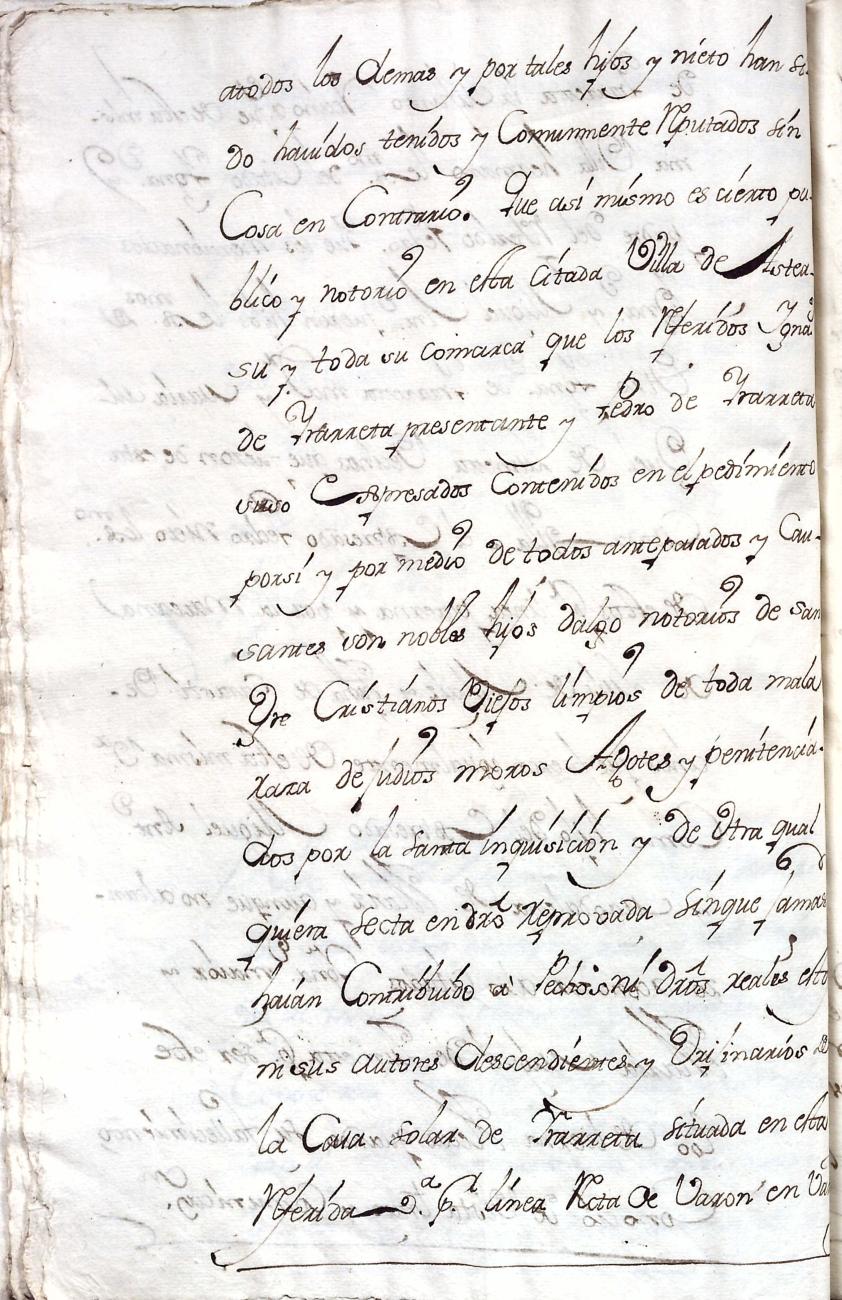 atodos los demas y por tales hijos y nieto han si-
do havidos tenidos y Comunmente Rputados sin
Cosa en Contrario. Que asi mismo es cierto pu-
blico y notorio en esta Citada Villa de Astea-
su y toda su Comarca que los Rferidos Ygna
de Yrarreta presentante y Pedro de Yrarreta
suso Espresados Contenidos en el pedimiento
porsi y por medio de todos antepasados y Cau-
santes son nobles hijos dalgo notorios de san
gre Cristianos Viejos limpios de toda mala
raza de judios moros Agotes y penitencia-
dos por la santa inquisición y de Otra qual
quiera Secta en dro Reprovada sinque jamas
haian Contribuido a Pechos ni dros reales esto
ni sus autores descendientes y Orijinarios de
la Casa solar de Yrarreta situada en esta
Rferida linea Rcta de Varon en Va